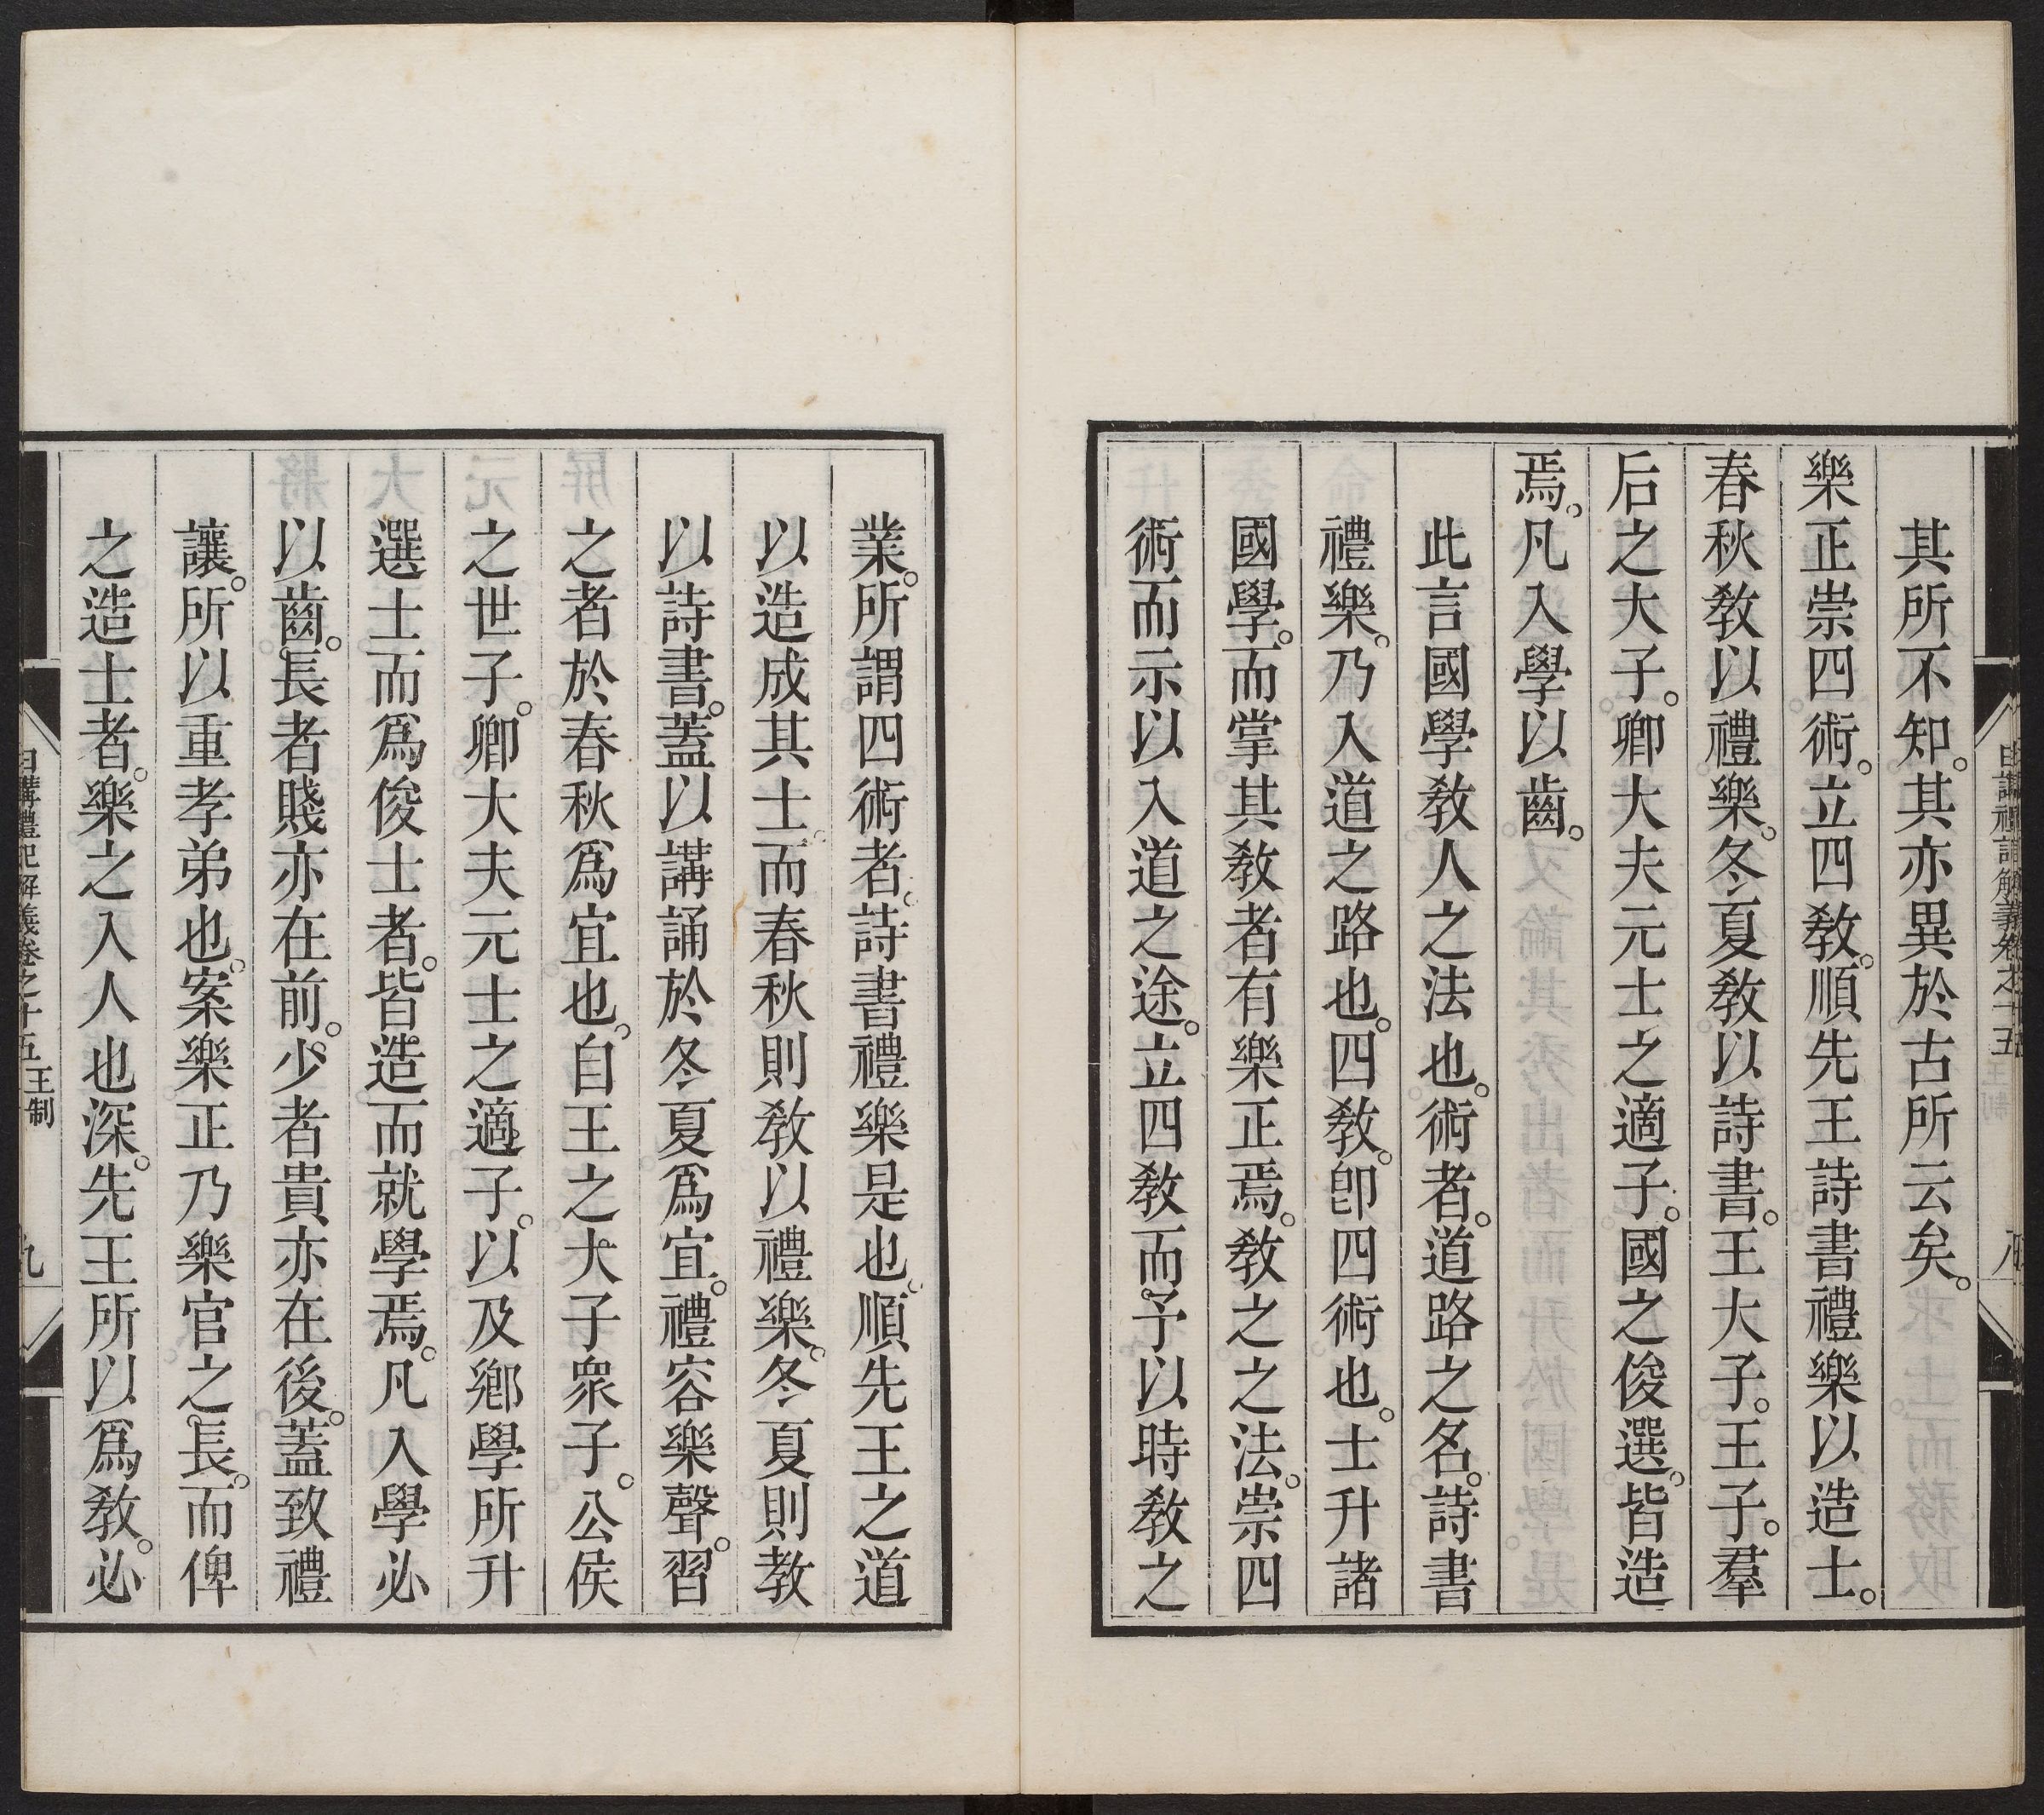 其所不知。其亦異於古所云矣。
樂正崇四術。立四教。順先王詩書禮樂以造士。
春秋教以禮樂。冬夏教以詩書。王大子。王子。羣
后之大子。卿大夫元士之適子。國之俊選。皆造
焉。凡入學以齒。
此言國學教人之法也。術者。道路之名。詩書
禮樂。乃入道之路也。四教。卽四術也。士升諸
國學。而掌其教者有樂正焉。教之之法。崇四
術而示以入道之途。立四教而予以時教之
業。所謂四術者。詩書禮樂是也。順先王之道
以造成其士。而春秋則教以禮樂。冬夏則教
以詩書。蓋以講誦於冬夏爲宜。禮容樂聲。習
之者於春秋爲宜也。自王之大子衆子。公侯
之世子。卿大夫元士之適子。以及鄉學所升
選士而爲俊士者。皆造而就學焉。凡入學必
以齒。長者賤亦在前。少者貴亦在後。蓋致禮
讓。所以重孝弟也。案樂正乃樂官之長。而俾
之造士者。樂之入人也深。先王所以爲教。必
日講禮記解義卷之十五 王制 九